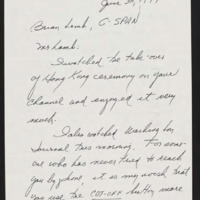 June 30, 1997
Brian Lamb, C-SPAN
Mr Lamb.
I watched the take over
of Hong Kong ceremony on your
channel and enjoyed it very
much.
I also watched
Journal this morning. For some-
one who has never tried to reach
you by phone, it is my word that
you use the CUT-OFF button more